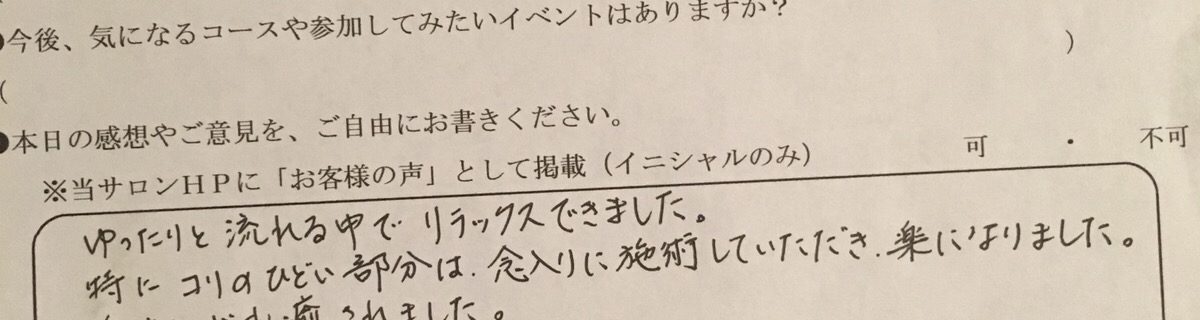 ●今後、気になるコースや参加してみたいイベントはありますか?
( )
●本日の感想やご意見を、ご自由にお書きください。
※当サロンHPに「お客様の声」として掲載(イニシャルのみ) 可 ・ 不可
ゆったりと流れる中でリラックスできました。
特にコリのひどい部分は、念入りに施術していただき、楽になりました。
癒されました。